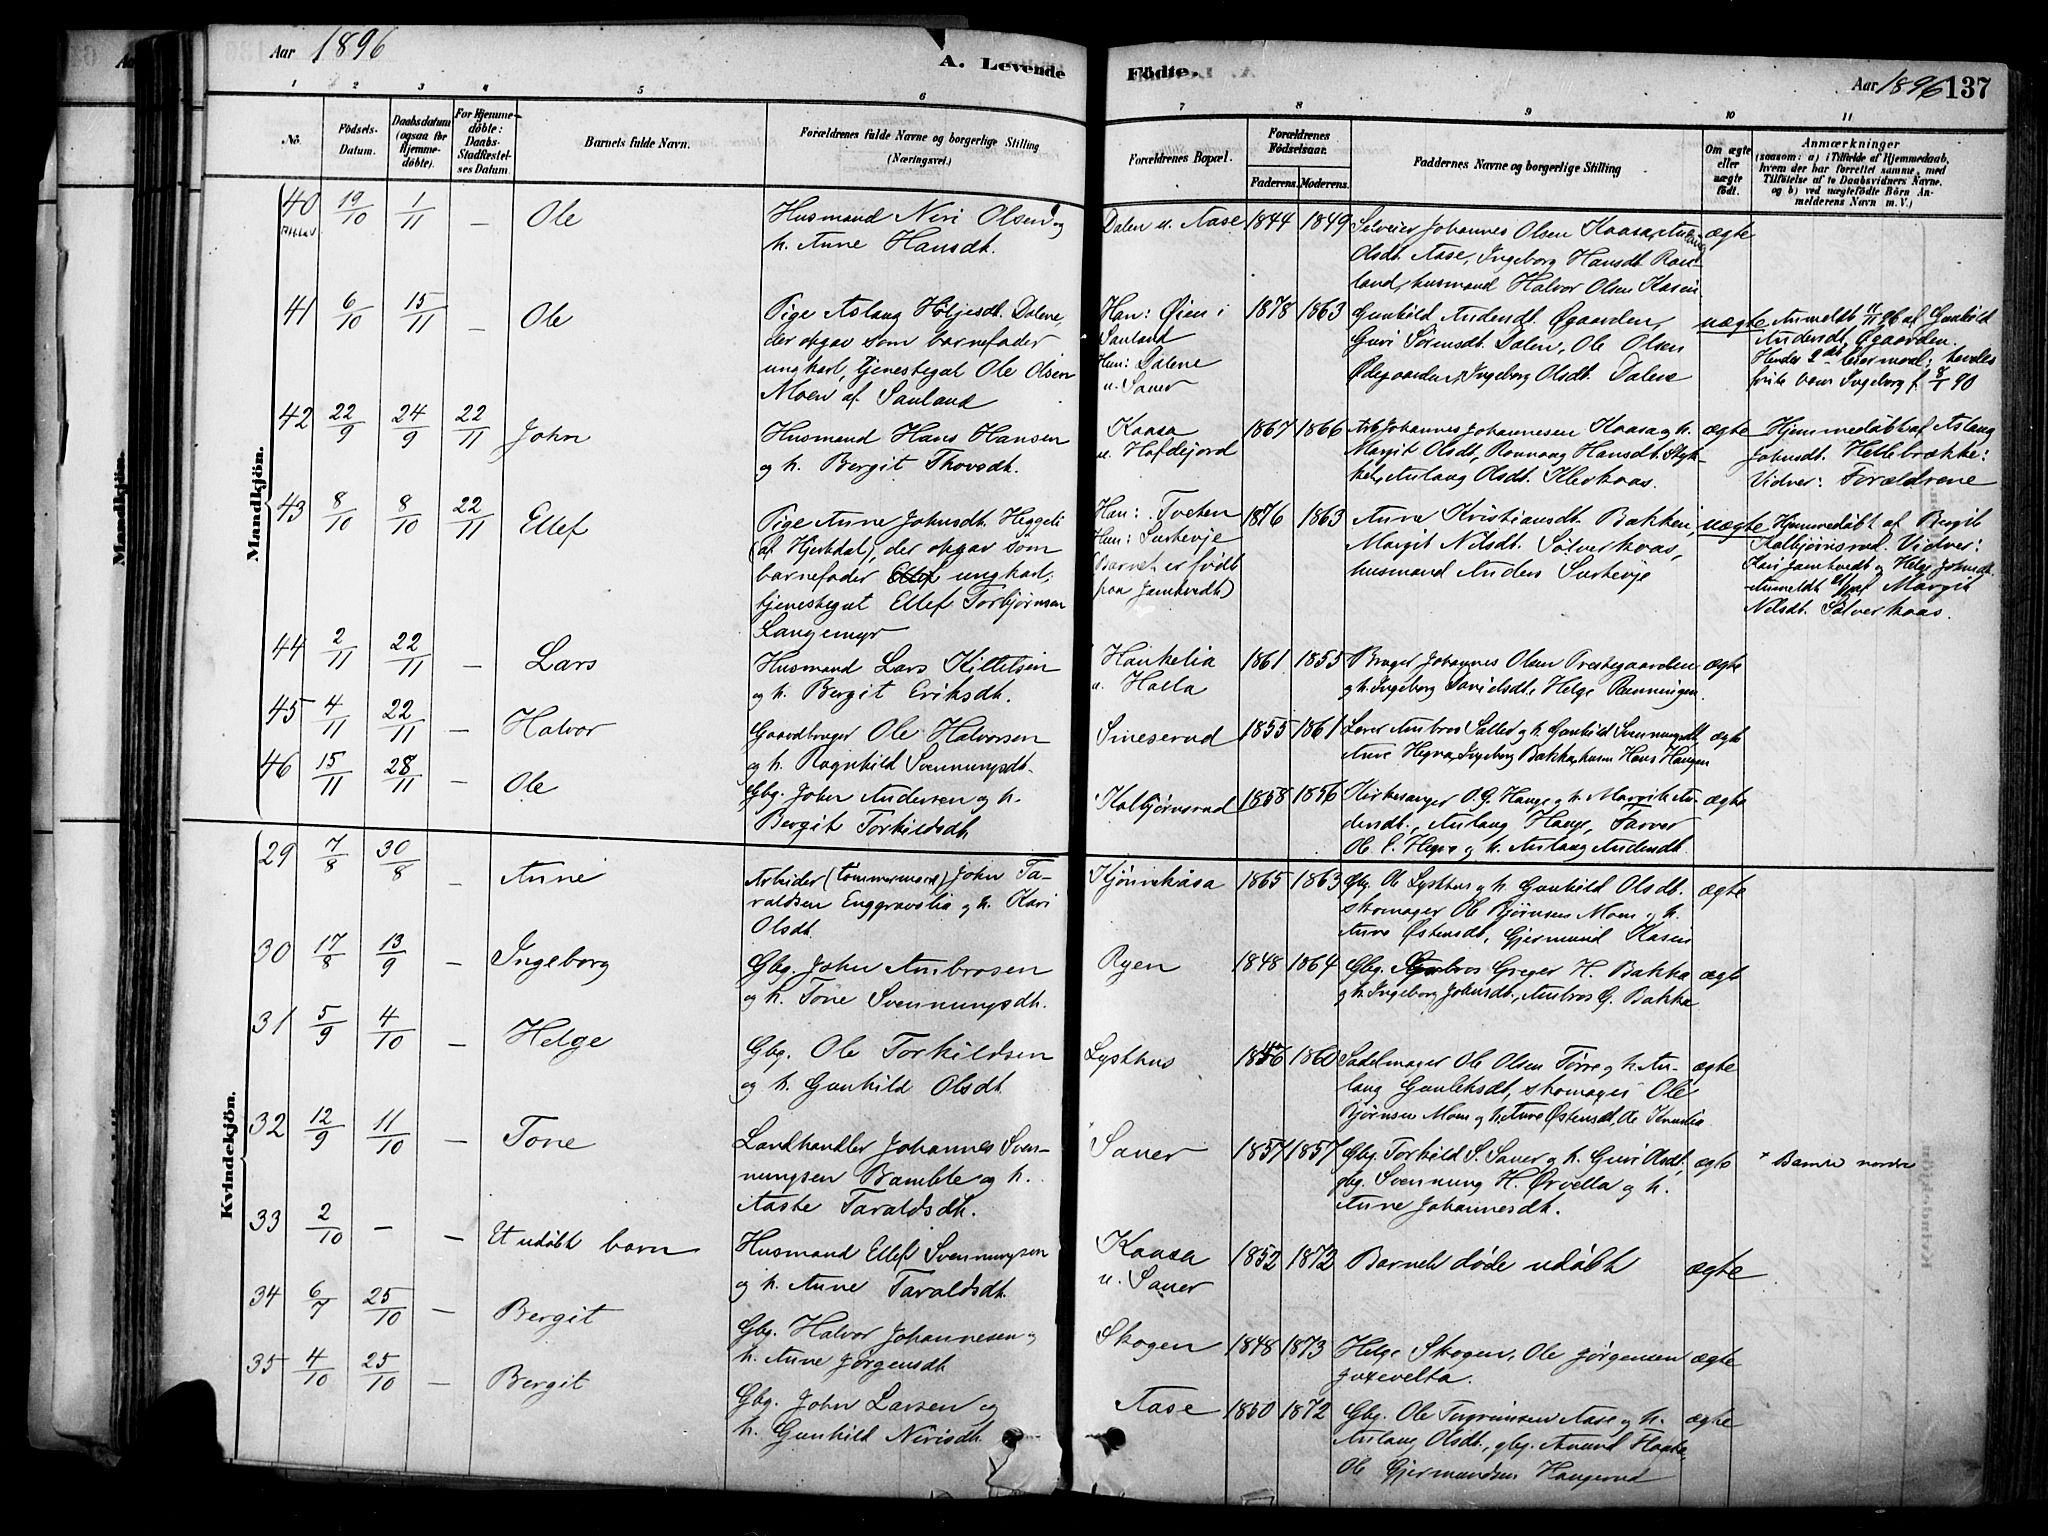 Aar 1896
A. Levende
Fødte.
Aar 1896 137
1 2 3 4 5 6 7 8 9 10 11
No.
Fødsels-
Datum.
Daabsdatum
(ogsaa for
Hjemme-
døbte).
For Hjemme-
døbte:
Daabs-
Stadfæstel-
ses Datum.
Barnets fulde Navn.
Forældrenes fulde Navne og borgerlige Stilling
(Næringsvei.)
Forældrenes Bopæl.
Forældrenes
Fødselsaar.
Faderens. Moderens.
Faddernes Navne og borgerlige Stilling
Om ægte
eller
uægte
født.
Anmærkninger
(saasom: a) i Tilfælde af Hjemmedaab,
hvem der har forrettet samme, med
Tilføielse af to Daabsvidners Navne,
og b) ved uægtefødte Børn An-
melderens Navn m. V.)
Mandkjøn.
40 19/10 1/11 – Ole
Husmand Neri Olsen og
h. Anne Hansdt.
Dalen u. Aase 1844 1849
Selveier Johannes Olsen Kaasa, Aslaug
Olsdt. Aase, Ingeborg Hansdt. Rau-
land, husmand Halvor Olsen Kasin
ægte
41 6/10 15/11 – Ole
Pige Aslaug Høljesdt. Dalene,
der opgav som barnefader
ungkarl, tjenestegut Ole Olsen
Moen af Sauland
Han: Øien i
Sauland
Hun: Dalene
u. Sauer
1878 1863
Gunhild Andersdt. Øgaarden,
Guri Sørensdt. Dalen, Ole Olsen
Ødegaarden, Ingeborg Olsdt. Dalene
uægte
Anmeldt 11/11 96 af Gunhild
Andersdt. Øgaarden.
Hendes 2det leiermaal: hendes
første barn Ingeborg f. 8/1 90
42 22/9 24/9 22/11 John
Husmand Hans Hansen
og h. Bergit Thovsdt.
Kaasa
u. Hafdejord
1867 1866
Arb. Johannes Johannesen Kaasa og h.
Margit Olsdt, Rannaug Hansdt. Styk-
ket, Aslaug Olsdt. Klevkaas.
ægte
Hjemmedøbt af Aslaug
Johnsdt. Hellebrække:
Vidner: Forældrene
43 8/10 8/10 22/11 Ellef
Pige Anne Johnsdt. Heggeli
(af Hjertdal), der opgav som
barnefader ungkarl,
tjenestegut Ellef Torbjørnsen
Langemyr
Han: Tveten
Hun: Surtevje
(Barnet er født
paa Jamtvedt)
1876 1863
Anne Kristiansdt. Bakken,
Margit Nilsdt. Sølverkaas,
husmand Anders Surtevje
uægte
Hjemmedøbt af Bergit
Kolbjørnsrud. Vidner:
Kari Jamtvedt og Helge Johnsdt.
Anmeldt af Margit
Nilsdt. Sølverkaas.
44 2/11 22/11 – Lars
Husmand Lars Kittelsen
og h. Bergit Eriksdt.
Haukelia
u. Holla
1861 1855
Bruger Johannes Olsen Prestegaarden
og h. Ingeborg Davidsdt, Helge Rønningen
ægte
45 4/11 22/11 – Halvor
Gaardbruger Ole Halvorsen
og h. Ragnhild Svennungsdt.
Sineserud 1855 1861
Lærer Ambros Sølled og h. Gunhild Svennungsdt,
Anne Hegna, Ingeborg Bakka, husm Hans Haugen
ægte
46 15/11 28/11 – Ole
Gbg. John Andersen og h.
Bergit Torkildsdt.
Kolbjørnsrud 1858 1856
Kirkesanger O. G. Hauge og h. Margit An-
dersdt., Aslaug Hauge, Farver
Ole E. Hegna og h. Aslaug Andersdt.
ægte
Kvindekjøn.
29 7/8 30/8 – Anne
Arbeider (tømmermand) John Ta-
raldsen Enggravslia og h. Kari
Olsdt.
Kjønnekåsa 1865 1863
Gbg. Ole Lysthus og h. Gunhild Olsdt.
skomager Ole Bjørnsen Moen og h.
Anne Østensdt, Gjermund Kasin
ægte
30 17/8 13/9 – Ingeborg
Gbg. John Ambrosen
og h. Tone Svennungsdt.
Ryen 1848 1864
Gbg. Greger H. Bakka
og h. Ingeborg Johnsdt., Ambros G. Bakka
ægte
31 5/9 4/10 – Helge
Gbg. Ole Torkildsen
og h. Gunhild Olsdt.
Lysthus 1860
Sadelmager Ole Olsen Tørre og h. As-
laug Gunleksdt, skomager Ole
Bjørnsen Moen og h. Anne Østensdt,
ægte
32 12/9 11/10 – Tone
Landhandler Johannes Sven-
nungsen Bamble og h.
Aaste Taraldsdt.
Sauer 1857 1857
Gbg. Torkild S. Sauer og h. Guri Olsdt,
gbg. Svennung H. Ørvella og h.
Anne Johannesdt.
ægte
* Bamle nordre
33 2/10 – – Et udøbt barn
Husmand Ellef Svennungsen
og h. Anne Taraldsdt.
Kaasa
u. Sauer
1852 1872
Barnet døde udøbt
ægte
34 6/7 25/10 – Bergit
Gbg. Halvor Johannesen og
h. Anne Jørgensdt.
Skogen 1848 1873
Helge Skogen, Ole Jørgensen
Juvevelta.
ægte
35 4/10 25/10 – Bergit
Gbg. John Larsen og
h. Gunhild Nerisdt.
Aase 1850 1872
Gbg. Ole Ingrimsen Aase og h.
Aslaug Olsdt., gbg. Amund Haatve,
Ole Gjermundsen Haugerud
ægte